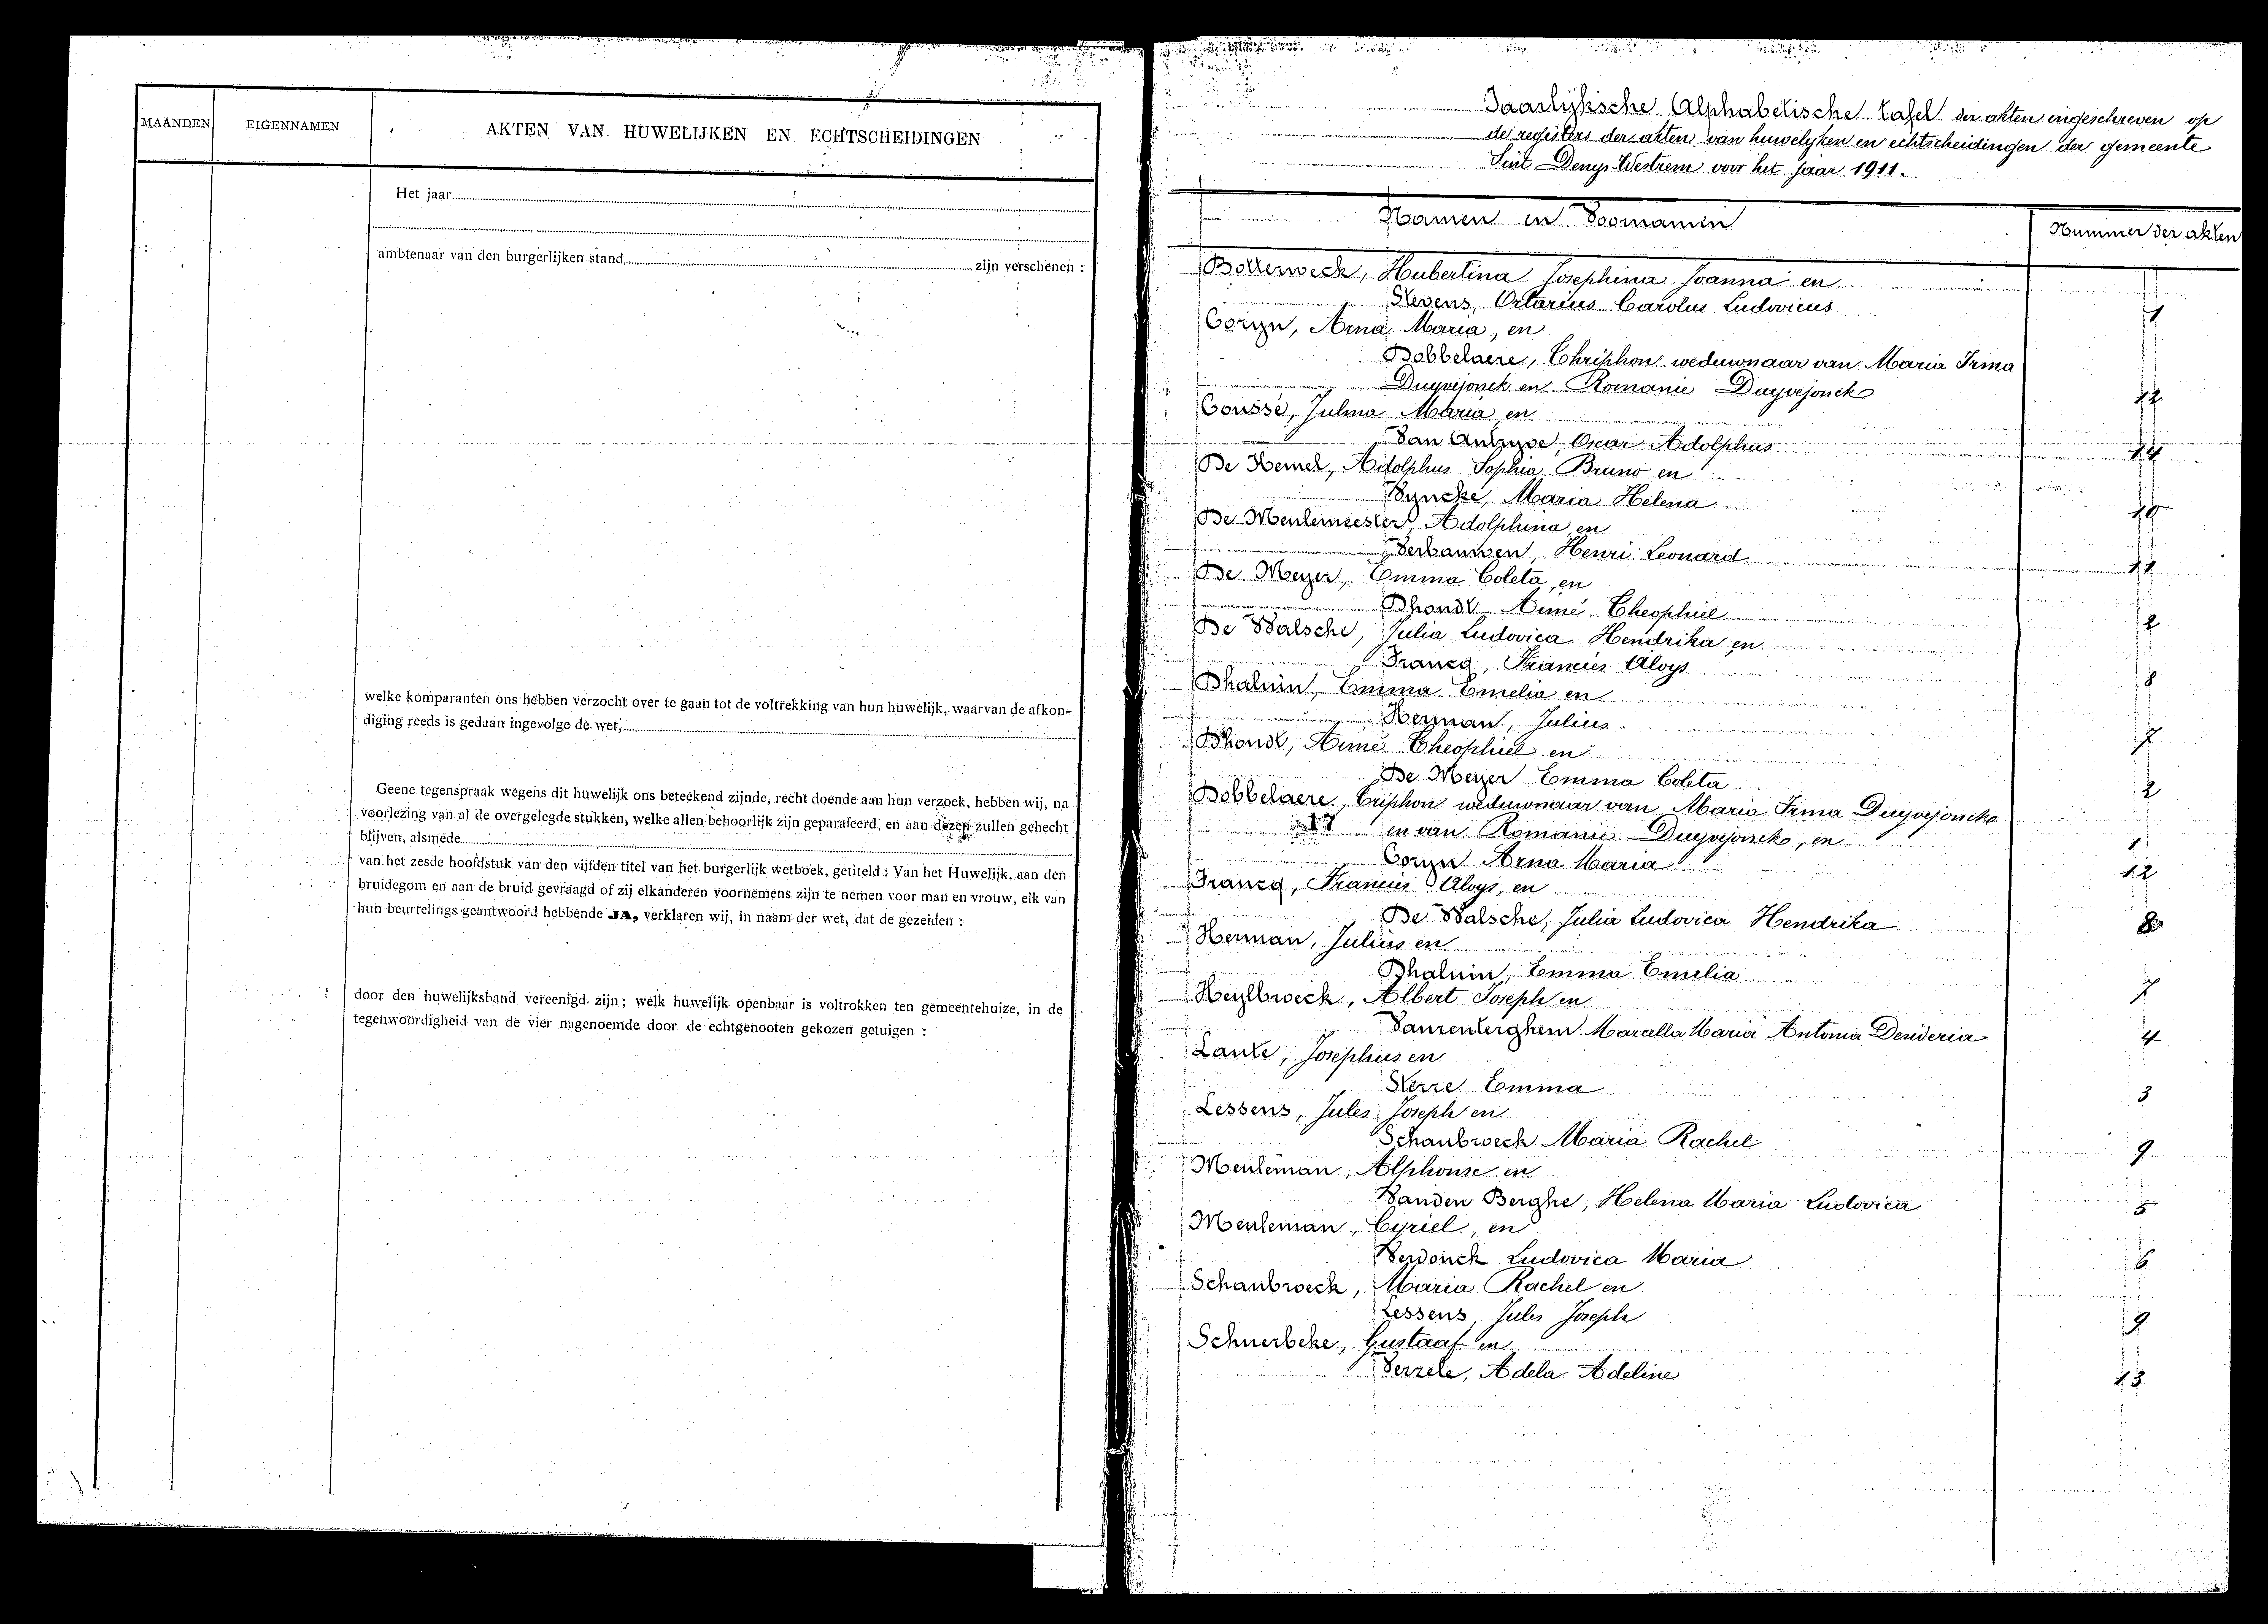 MAANDEN
EIGENNAMEN
AKTEN VAN HUWELIJKEN EN ECHTSCHEIDINGEN
Het jaar
ambtenaar van den burgerlijken stand zijn verschenen :
welke komparanten ons hebben verzocht over te gaan tot de voltrekking van hun huwelijk, waarvan de afkon-
diging reeds is gedaan ingevolge de wet,
Geene tegenspraak wegens dit huwelijk ons beteekend zijnde, recht doende aan hun verzoek, hebben wij, na
voorlezing van al de overgelegde stukken, welke allen behoorlijk zijn geparafeerd, en aan dezen zullen gehecht
blijven, alsmede
van het zesde hoofdstuk van den vijfden titel van het burgerlijk wetboek, getiteld : Van het Huwelijk, aan den
bruidegom en aan de bruid gevraagd of zij elkanderen voornemens zijn te nemen voor man en vrouw, elk van
hun beurtelings geantwoord hebbende JA, verklaren wij, in naam der wet, dat de gezeiden :
door den huwelijksband vereenigd zijn ; welk huwelijk openbaar is voltrokken ten gemeentehuize, in de
tegenwoordigheid van de vier nagenoemde door de echtgenooten gekozen getuigen :
Jaarlijksche Alphabetische tafel der akten ingeschreven op
de registers der akten van huwelyken en echtscheidingen der gemeente
Sint Denys-Westrem voor het jaar 1911.
Namen en Voornamen Nummer der akten
Bollerweck, Hubertina Josephina Joanna en
Stevens, Octarius Carolus Ludovicus 1
Coryn, Arna Maria, en
Dobbelaere, Thriphon weduwnaar van Maria Irma
Duyvejonck en Romanie Duyvejonck 12
Coussé, Julma Maria en
Van Autryve, Oscar Adolphus 14
De Kemel, Adolphus Sophia Bruno en
Vyncke, Maria Helena 10
De Meulemeester, Adolphina en
Verbauwen, Henri Leonard 11
De Meyer, Emma Coleta, en
Dhondt Aimé Theophiel 2
De Walsche, Julia Ludovica Hendrika en
Francq, Francies Aloys 8
Dhaluin, Emma Emelia en
Herman, Julius 7
Dhondt, Aimé Theophiel en
De Meyer Emma Coleta 2
Dobbelaere, Triphon weduwnaar van Maria Irma Duyvejonck
17 en van Romanie Duyvejonck, en 1
Coryn Arna Maria 12
Francq, Francies Aloys, en
De Walsche, Julia Ludovica Hendrika 8
Herman, Julius en
Dhaluin, Emma Emelia 7
Heylbroeck, Albert Joseph en
Vanrenterghem Marcella Maria Antonia Desideria 4
Laute, Josephus en
Sterre Emma 3
Lessens, Jules Joseph en
Schaubroeck Maria Rachel 9
Meuleman, Alphonse en
Vanden Berghe, Helena Maria Ludovica 5
Meuleman, Cyriel, en
Verdonck Ludovica Maria 6
Schaubroeck, Maria Rachel en
Lessens, Jules Joseph 9
Schuerbeke, Gustaaf en
Verzele, Adela Adeline 13